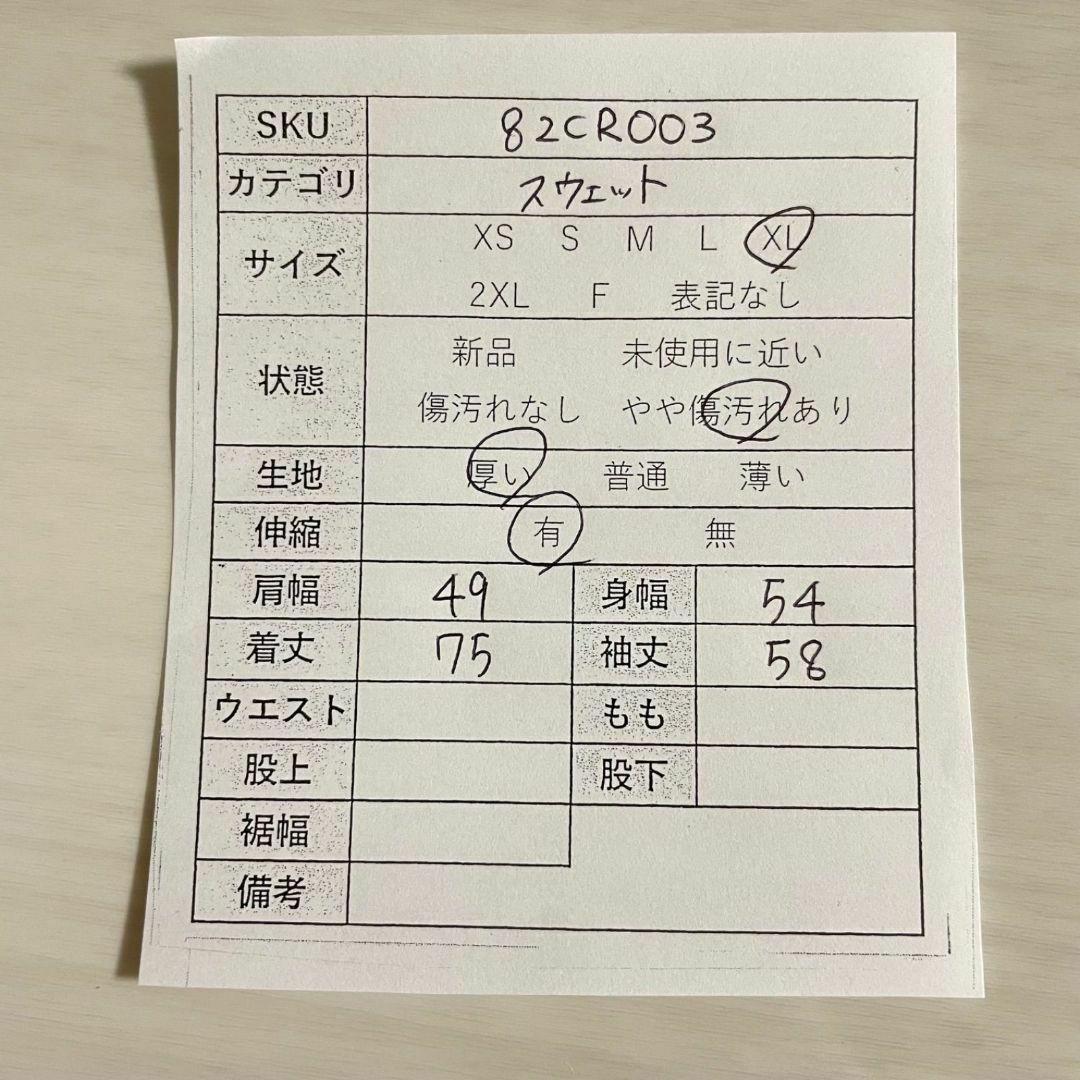 SKU 82CR003
カテゴリ スウェット
サイズ XS S M L XL
2XL F 表記なし
状態 新品 未使用に近い
傷汚れなし やや傷汚れあり
生地 厚い 普通 薄い
伸縮 有 無
肩幅 49 身幅 54
着丈 75 袖丈 58
ウエスト もも
股上 股下
裾幅
備考